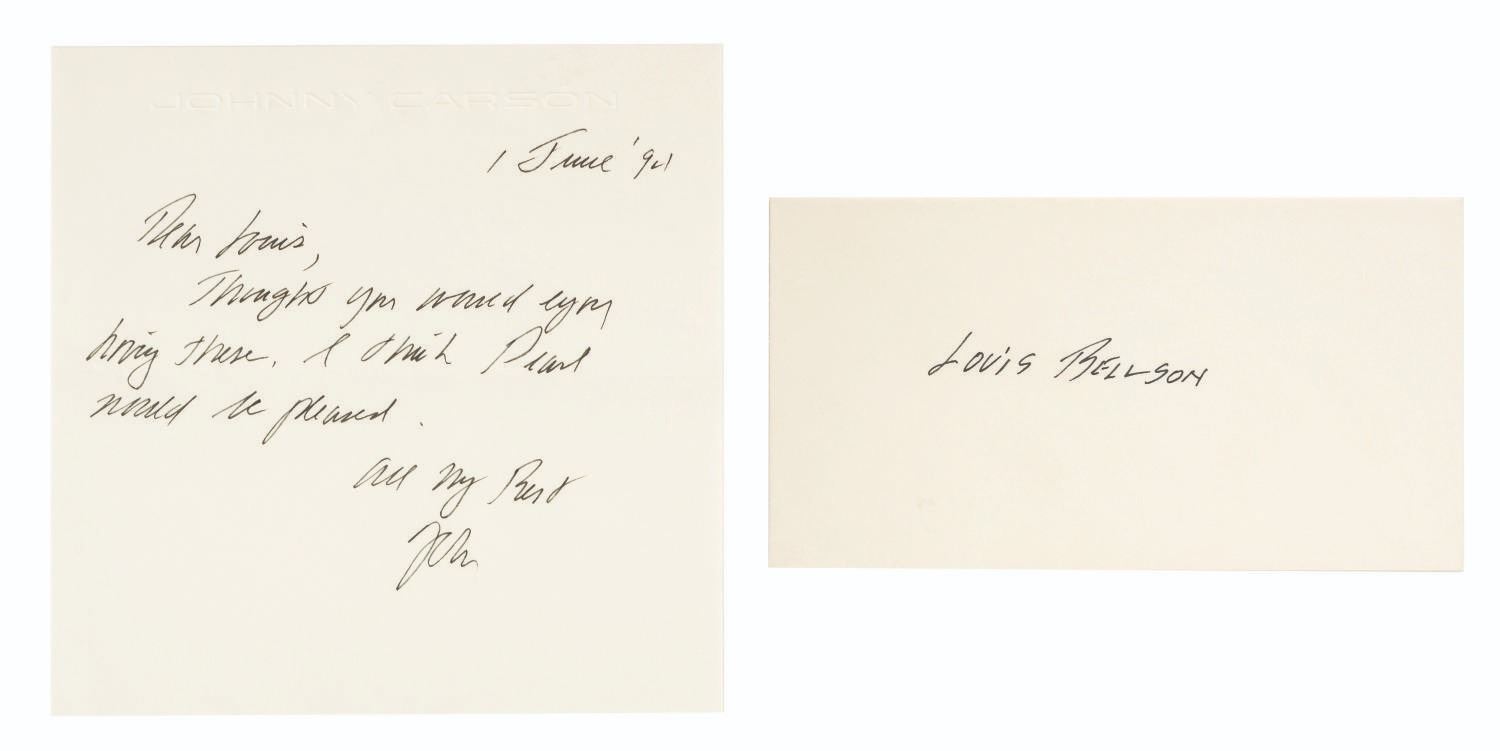 JOHNNY CARSON
1 June '94
Dear Louis,
Thought you would enjoy
having these. I think Pearl
would be pleased.
All my Best
John
LOUIS BELLSON